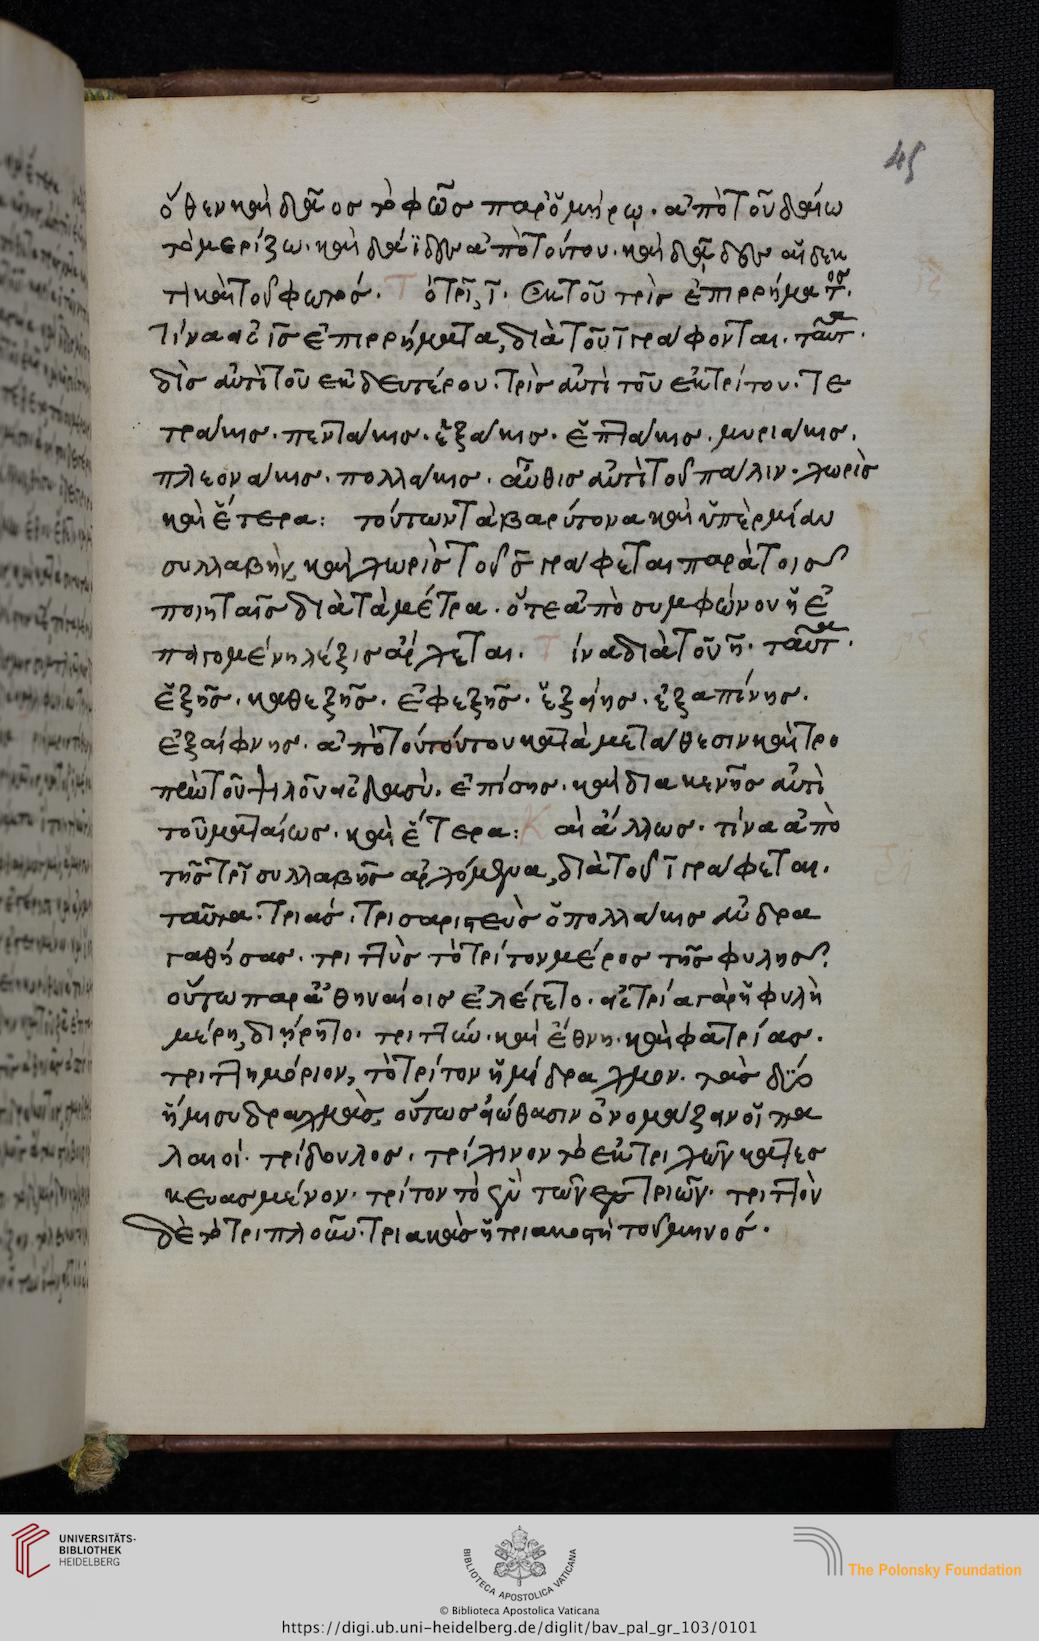 45
ὅθεν καὶ δᾶος τὸ φῶς παρ' ὁμήρῳ. ἀπὸ τοῦ δαίω
τὸ μερίζω. καὶ ἀπὸ τούτου. καὶ
καὶ τοῦ φωτός. Τ ὅτι ἐκ τοῦ τρὶς ἐπιρρήματος.
τίνα εἰς ῑς ἐπιρρήματα, διὰ τοῦ ῑ γράφονται. ταῦτα.
δὶς ἀντὶ τοῦ ἐκ δευτέρου. τρὶς ἀντὶ τοῦ ἐκ τρίτου. τε
τράκις. πεντάκις. ἑξάκις. ἑπτάκις. μυριάκις.
πλεονάκις. πολλάκις. αὖθις ἀντὶ τοῦ πάλιν. χωρὶς
καὶ ἕτερα: τούτων τὰ βαρύτονα καὶ ὑπὲρ μίαν
συλλαβὴν, καὶ χωρὶς τοῦ ς̄ γράφεται παρὰ τοῖς
ποιηταῖς διὰ τὰ μέτρα. ὅτε ἀπὸ συμφώνου ἡ ἐ
παγομένη λέξις ἄρχεται. Τ ίνα διὰ τοῦ η̄. ταῦτα.
ἑξῆς. καθεξῆς. ἐφεξῆς. ἑξείης. ἐξαπίνης.
ἐξαίφνης. ἀπὸ τούτου κατὰ μετάθεσιν καὶ τρο
πὴν τοῦ ψιλοῦ εἰς δασύ. ἐπίσης. καὶ διακενῆς ἀντὶ
τοῦ ματαίως. καὶ ἕτερα: Κ αὶ ἄλλως. τίνα ἀπὸ
τῆς τρῑ συλλαβῆς ἀρχόμενα, διὰ τοῦ ῑ γράφεται.
ταῦτα. τριάς. τρισαριστεὺς ὁ πολλάκις ἀνδρα
γαθήσας. τριττὺς τὸ τρίτον μέρος τῆς φυλῆς.
οὕτω παρ' ἀθηναίοις ἐλέγετο. εἰς τρία γὰρ ἡ φυλὴ
μέρη, διῄρητο. τριττύν. καὶ ἔθνη. καὶ φατρίας.
τριτημόριον, τὸ τρίτον ἡμίδραχμον. τὰς δύο
ἥμισυ δραχμὰς, οὕτως εἰώθασιν ὀνομάζειν οἱ πα
λαιοί. τρίδουλος. τρίχινον τὸ ἐκ τριχῶν κατες
κευασμένον. τρίτον τὸ τῶν τριῶν. τριττὸν
δὲ τὸ τριπλοῦν. τριακὰς ἡ τριακοστὴ τοῦ μηνός.
UNIVERSITÄTS-
BIBLIOTHEK
HEIDELBERG
BIBLIOTECA APOSTOLICA VATICANA
The Polonsky Foundation
© Biblioteca Apostolica Vaticana
https://digi.ub.uni-heidelberg.de/diglit/bav_pal_gr_103/0101